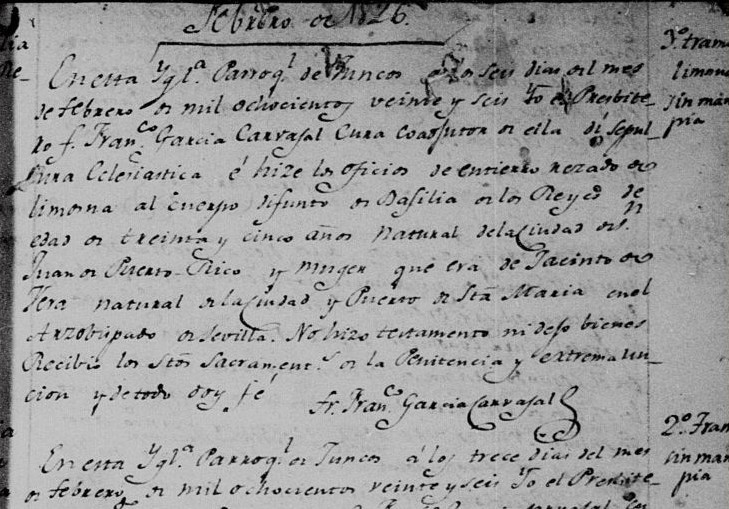 Febrero de 1826.
En esta Ygl.a Parroq.l de Juncos a los seis dias del mes
de febrero de mil ochocientos veinte y seis Yo el Presbite-
ro f. Fran.co Garcia Carvajal Cura Coadjutor de ella dí sepul-
tura Eclesiastica é hize los oficios de entierro rezado de
limosna al cuerpo difunto de Basilia de los Reyes de
edad de treinta y cinco años natural de la Ciudad de S.n
Juan de Puerto-Rico y muger que era de Jacinto de
Vera natural de la Ciudad y Puerto de Sta Maria en el
Arzobispado de Sevilla. No hizo testamento ni dejo bienes
Recibió los Stos Sacrament.s de la Penitencia y extremaun-
cion y de todo doy fé
Fr. Fran.co Garcia Carvajal
En esta Ygl.a Parroq.l de Juncos á los trece dias del mes
de febrero de mil ochocientos veinte y seis Yo el Presbite-
3.o tram
limosna
sin man
pia
2.o Fran
sin man
pia